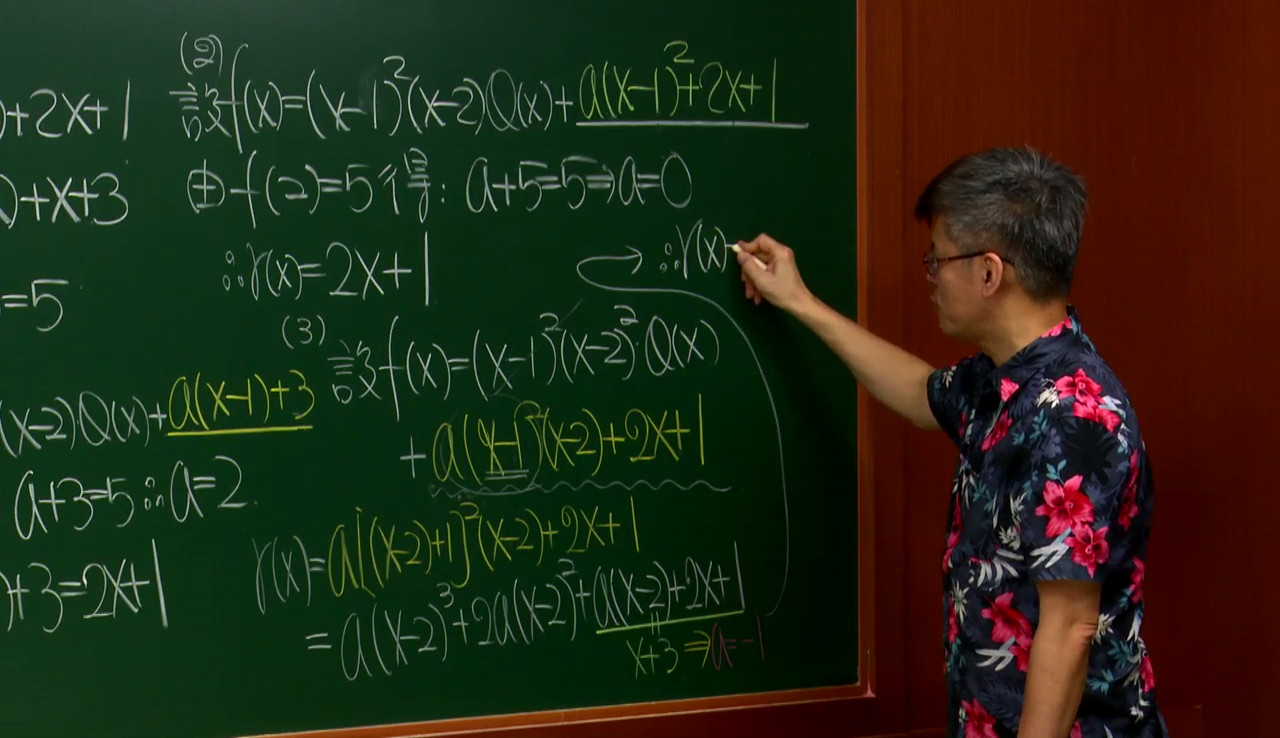 )+2x+1
)+x+3
=5
(x-2)Q(x)+a(x-1)+3
a+3=5∴a=2
)+3=2x+1
(2)
設f(x)=(x-1)²(x-2)Q(x)+a(x-1)²+2x+1
由f(2)=5得:a+5=5⇒a=0
∴r(x)=2x+1
(3)
設f(x)=(x-1)²(x-2)²Q(x)
+a(x-1)²(x-2)+2x+1
r(x)=a[(x-2)+1]²(x-2)+2x+1
=a(x-2)³+2a(x-2)²+a(x-2)+2x+1
x+3⇒a=-1
→∴r(x)